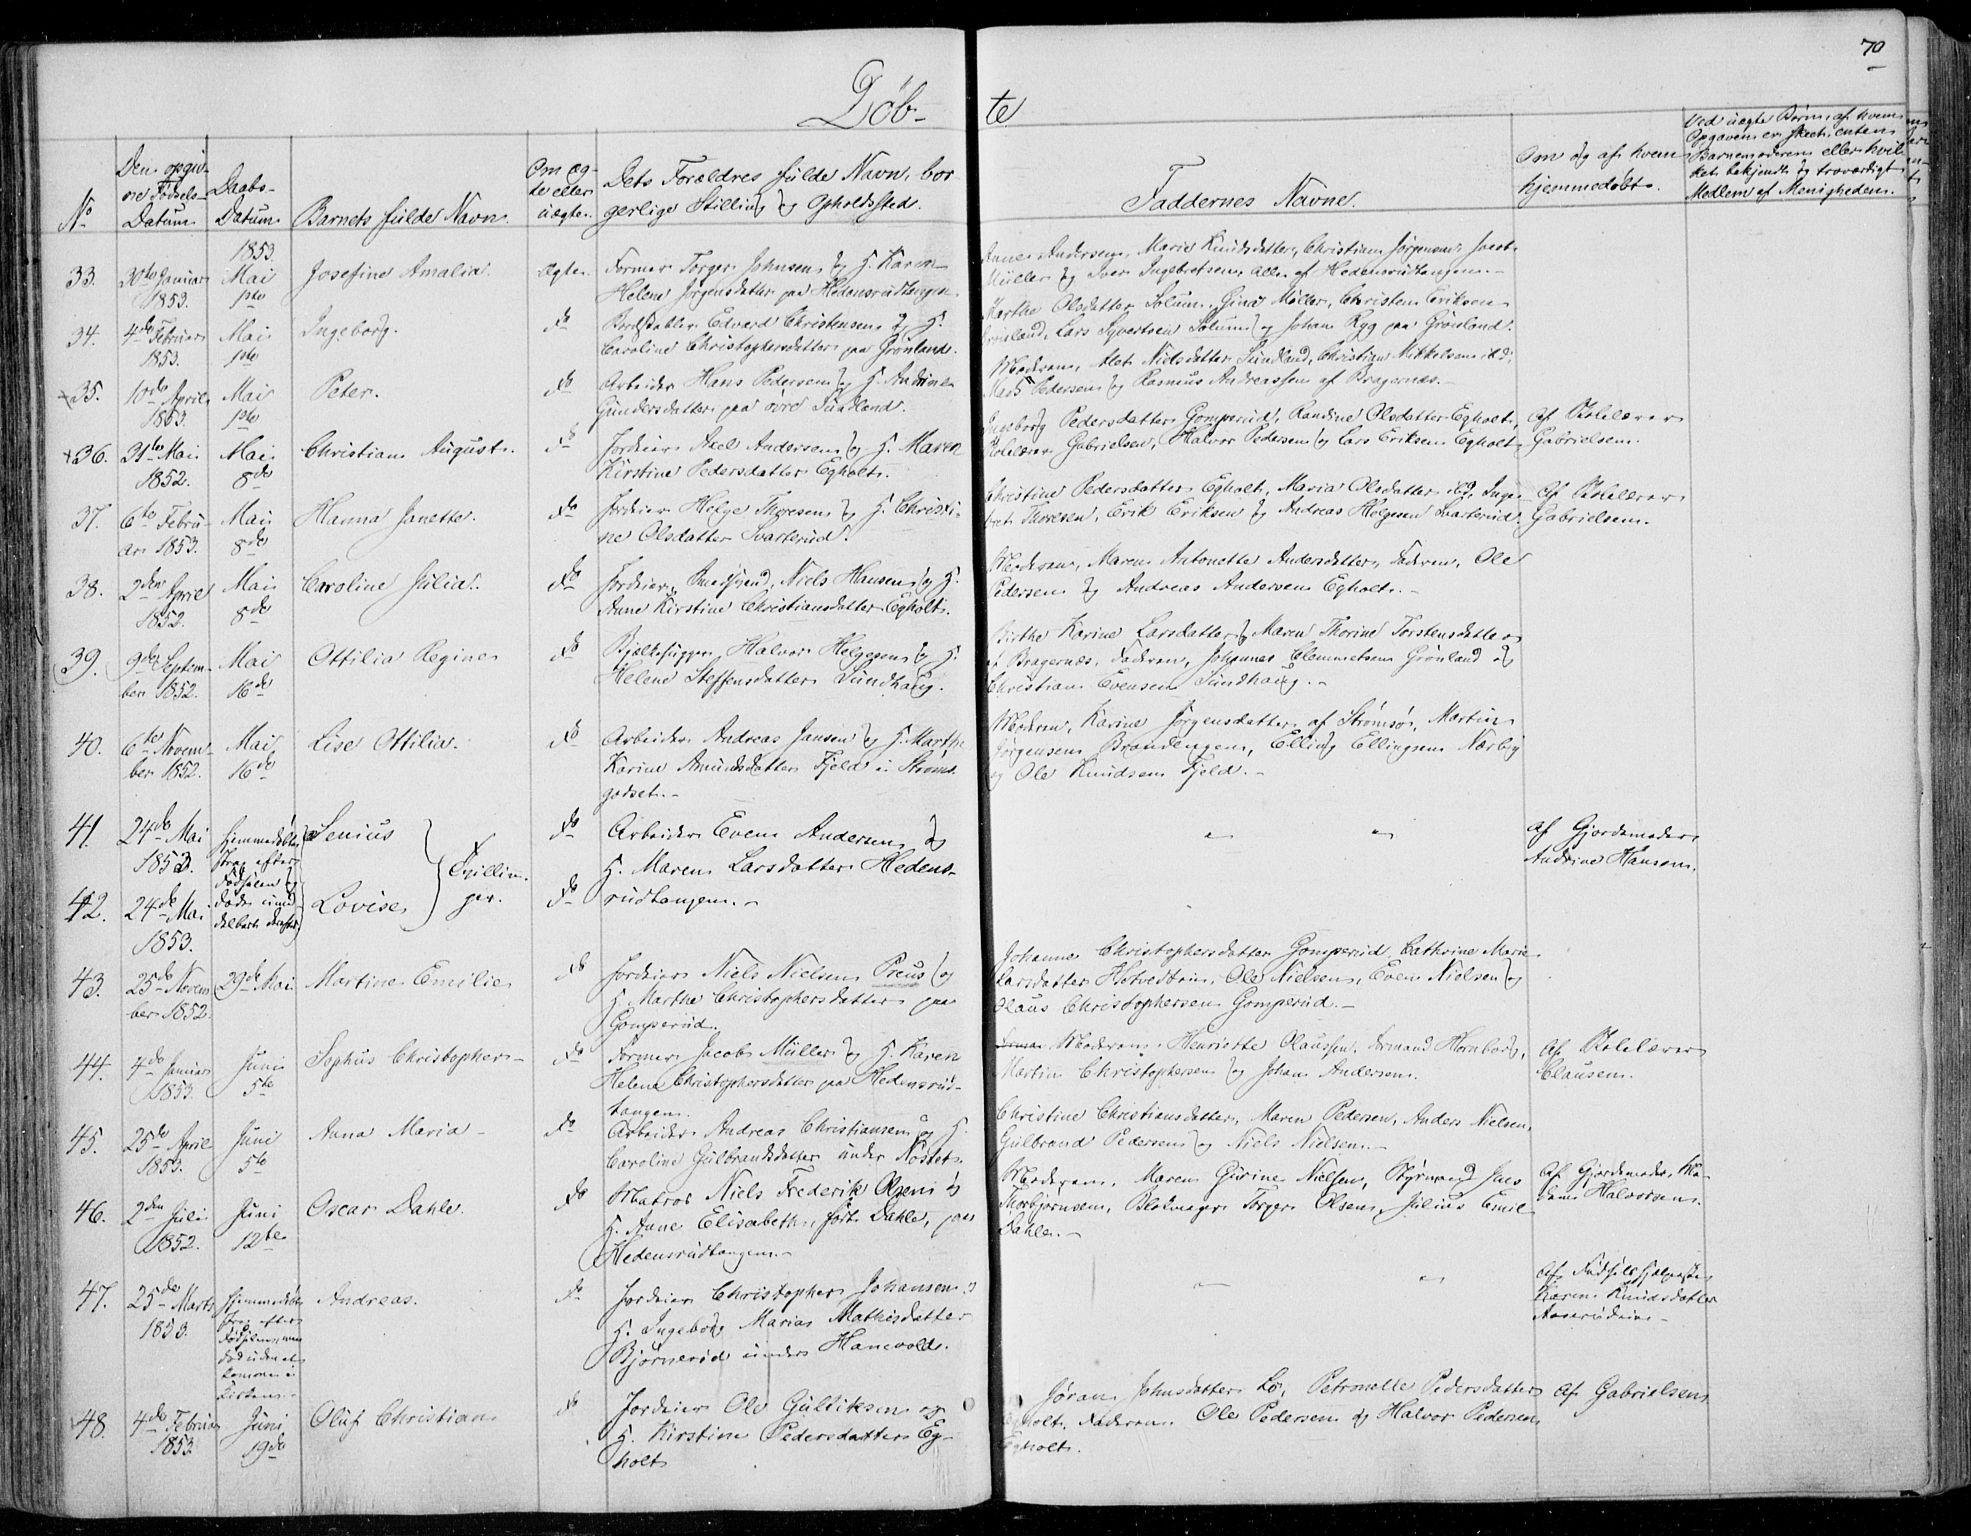 70
Døbte
No
Den opgivne Fødsels-Datum
Daabs-Datum
Barnets fulde Navn.
Om ægte eller uægte.
Dets Forældres fulde Navn, borgerlige Stilling og Opholdssted.
Faddernes Navne.
Om og af hvem hjemmedøbt.
Ved uægte Børn af hvem Opgaven er skeet, enten Barnemoderen eller hvilket bekjendt og troværdigt Medlem af Menigheden.
1853.
33. 30te Januar 1853. Mai 1ste Josefine Amalia. Ægte.
Former Torger Johnsen og H. Karen
Helene Jørgensdatter paa Hedensrudtangen
Anne Andersen, Marie Knudsdatter, Christian Jørgensen, Jacob
Müller og Iver Ingebretsen, alle af Hedensrudtangen.-
34. 4de Februar 1853. Mai 1ste Ingeborg. do
Bordstabler Edvard Christensen og H.
Caroline Christophersdatter paa Grønland.
Marthe Olsdatter Solum, Gina Møller, Christen Eriksen
Grønland, Lars Syvertsen Solum og Johan Ryg paa Grønland.
35. 10de April 1853. Mai 1ste Peter. do
Arbeider Hans Pedersen og H. Andrine
Gundersdatter paa øvre Sundland.
Moderen, Nielsdatter Sundland, Christian Mikkelsen ibd:
Mads Pedersen og Rasmus Andreassen af Bragernæs.-
36. 31te Mai 1852. Mai 8de Christian August. do
Jordeier Axel Andersen og H. Maren
Kirstine Pedersdatter Egholt.
Ingeborg Pedersdatter Gomperud, Randine Olsdatter Egholt,
Skolelærer Gabrielsen, Halvor Pedersen og Lars Eriksen Egholt.
Af Skolelærer Gabrielsen.
37. 6te Februar 1853. Mai 8de Hanna Janette. do
Jordeier Helge Thoresen og H. Christi-
ne Olsdatter Svarterud.
Christine Pedersdatter Egholt, Maria Olsdatter ibd, Inge-
bret Thoresen, Erik Eriksen og Andreas Helgesen Svarterud.
Af Skolelærer Gabrielsen.
38. 2den April 1852. Mai 8de Caroline Julia. do
Jordeier, Niels Hansen og H.
Anne Kirstine Christiansdatter Egholt.
Moderen, Maren Antonette Andersdatter, Faderen, Ole
Pedersen og Andreas Andersen Egholt.-
39. 9de September 1852. Mai 16de Ottilia Regine do
Bjelkehugger Halvor Helgesen og H.
Helene Steffensdatter Sundhaug.
Birthe Karine Larsdatter, Maren Thorine Torstensdatter
af Bragernæs, Faderen, Johannes Clemmetsen Grønland og
Christian Evensen Sundhaug.-
40. 6te November 1852. Mai 16de Lise Ottilia. do
Arbeider Andreas Jansen og H. Marthe
Karine Amundsdatter Fjeld i Strøms-
godset.-
Moderen, Karine Jørgensdatter af Strømsø, Martin
Jørgensen Brandengen, Elling Ellingsen Nærby
og Ole Knudsen Fjeld.-
41. 24de Mai 1853. Hjemmedøbte strax efter Fødselen og døde umiddelbart derefter Senius Tvillinger. do
Arbeider Even Andersen og
H. Maren Larsdatter Hedens-
rudtangen.-
Af Gjordemoder Andrine Hansen.
42. 24de Mai 1853. Lovise do
43. 25de November 1852. 29de Mai Martine Emilie do
Jordeier Niels Nielsen Preus og
H. Marthe Christophersdatter paa
Gomperud.
Johanne Christophersdatter Gomperud, Cathrine Marie
Larsdatter, Ole Nielsen, Even Nielsen og
Olaus Christophersen Gomperud.-
44. 4de Januar 1853. Juni 5te Sophus Christopher- do
Former Jacob Müller og H. Karen
Helene Christophersdatter paa Hedensrud-
tangen.
Moderen, Henriette Olaussen, Hornborg,
Martin Christophersen og Johan Andersen.
Af Skolelærer Clausen.
45. 25de April 1853. Juni 5te Anna Maria- do
Arbeider Andreas Christiansen og H.
Caroline Gulbrandsdatter under Nøstet.
Christine Christiansdatter, Maren Pedersen, Anders Nielsen,
Gulbrand Pedersen og Niels Nielsen.-
46. 2den Juli 1852. Juni 12te Oscar Dahle. do
Matros Niels Frederik Olsen og
H. Anne Elisabeth, født Dahle, paa
Hedensrudtangen.-
Moderen, Maren Gurine Nielsen, Styrmand
Thorbjørnsen, Blokmager Torger Olsen, Julius Emil
Dahle.-
Af Gjordemoder, Madam Halvorsen.
47. 25de Marts 1853. Hjemmedøbt strax efter Fødselen, men død uden at komme i Kirken. Andreas. do
Jordeier Christopher Johansen og
H. Ingeborg Maria Mathisdatter
Bjørnerud under Hanevold.
Af Fødselshjelperske Karen Knudsdatter
48. 4de Februar 1853. Juni 19de Oluf Christian do
Jordeier Ole Guldiksen og
H. Kirstine Pedersdatter Eg-
holt
Jøran Johnsdatter Lø, Petronelle Pedersdatter
Egholt, Faderen, Ole Pedersen og Halvor Pedersen
Egholt.
Af Gabrielsen.